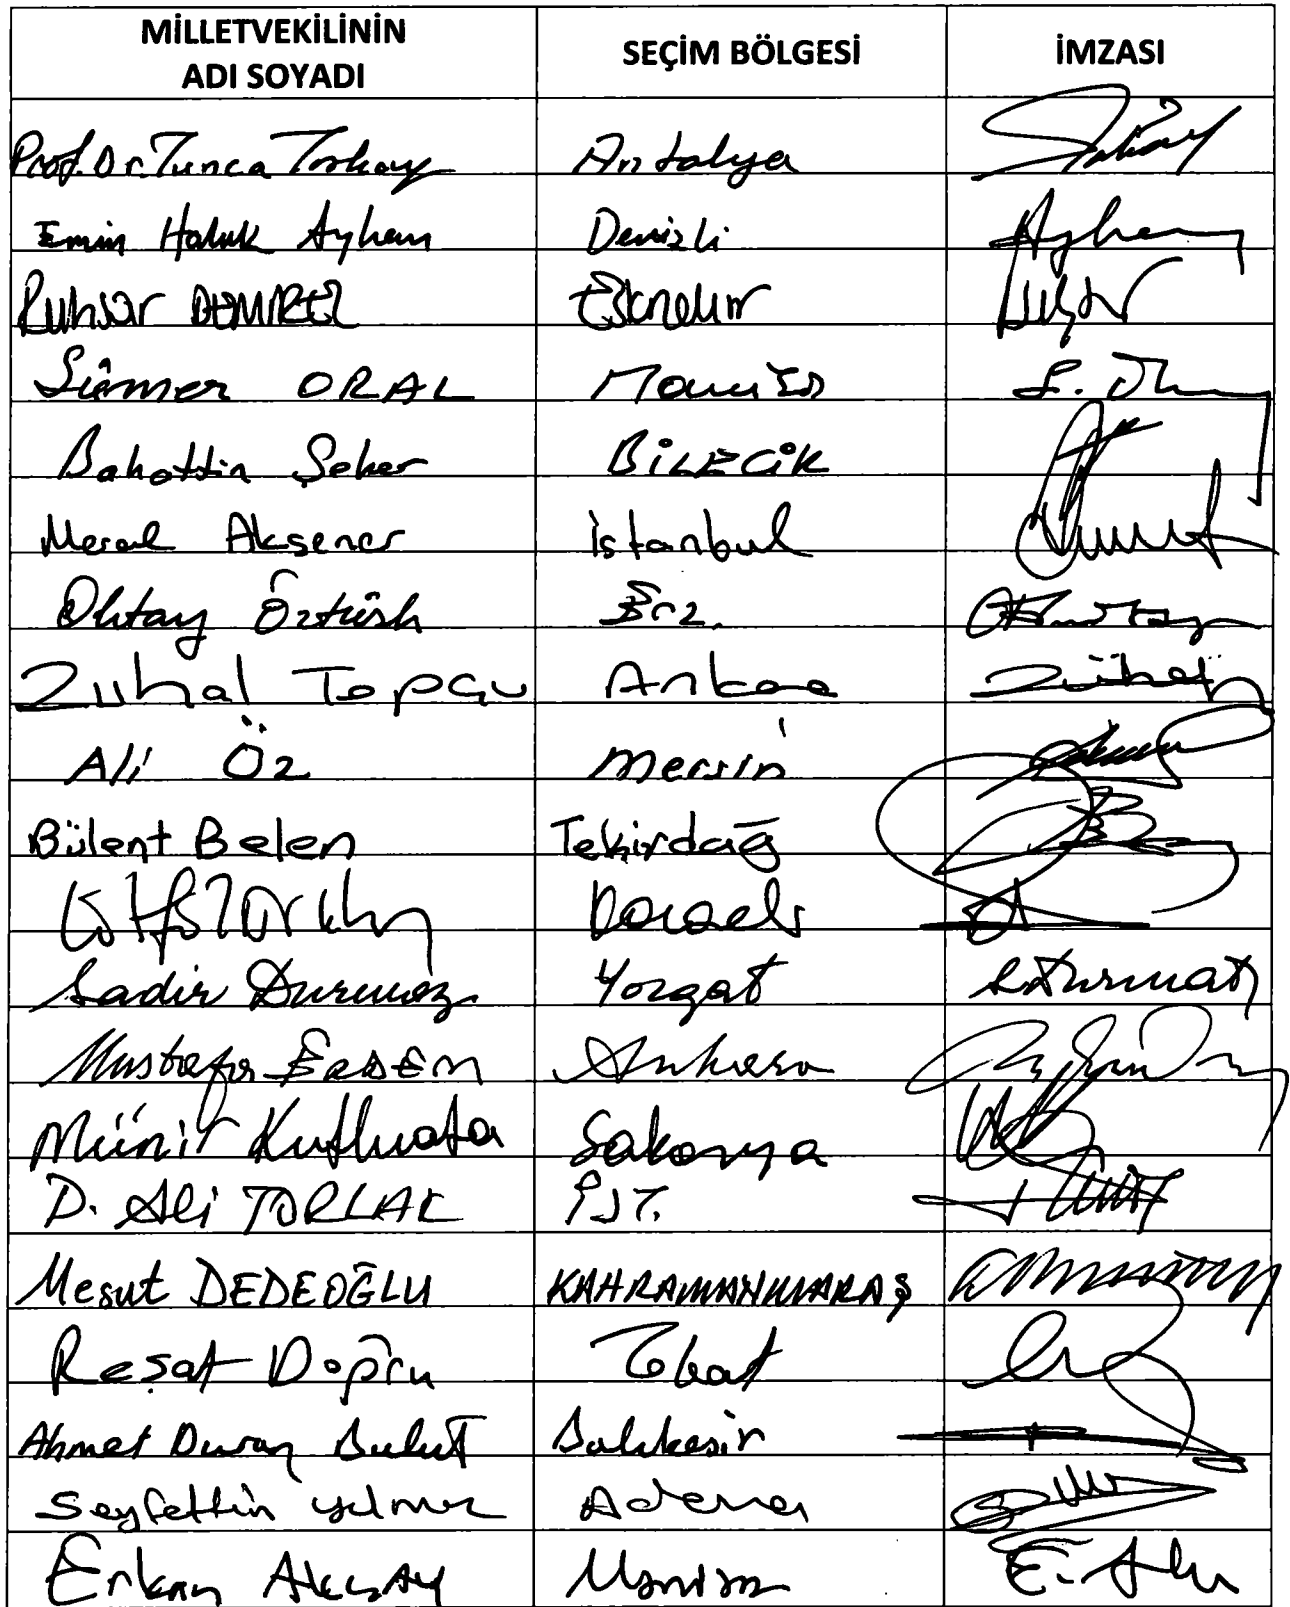 MİLLETVEKİLİNİN ADI SOYADI SEÇİM BÖLGESİ İMZASI
Prof. Dr. Tunca Toskay Antalya
Emin Haluk Ayhan Denizli Ayhan
Ruhsar DEMİREL Eskişehir
Sümer ORAL Manisa
Bahattin Şeker BİLECİK
Meral Akşener İstanbul
Oktay Öztürk Erz.
Zuhal Topcu Ankara Zühal
Ali Öz Mersin
Bülent Belen Tekirdağ
Lütfü Türkkan Kocaeli
Sadir Durmaz Yozgat S.Durmaz
Mustafa ERDEM Ankara
Münir Kutluata Sakarya
D. Ali TORLAK İST.
Mesut DEDEOĞLU KAHRAMANMARAŞ
Reşat Doğru Tokat
Ahmet Duran Bulut Balıkesir
Seyfettin Yılmaz Adana
Erkan AKÇAY Manisa